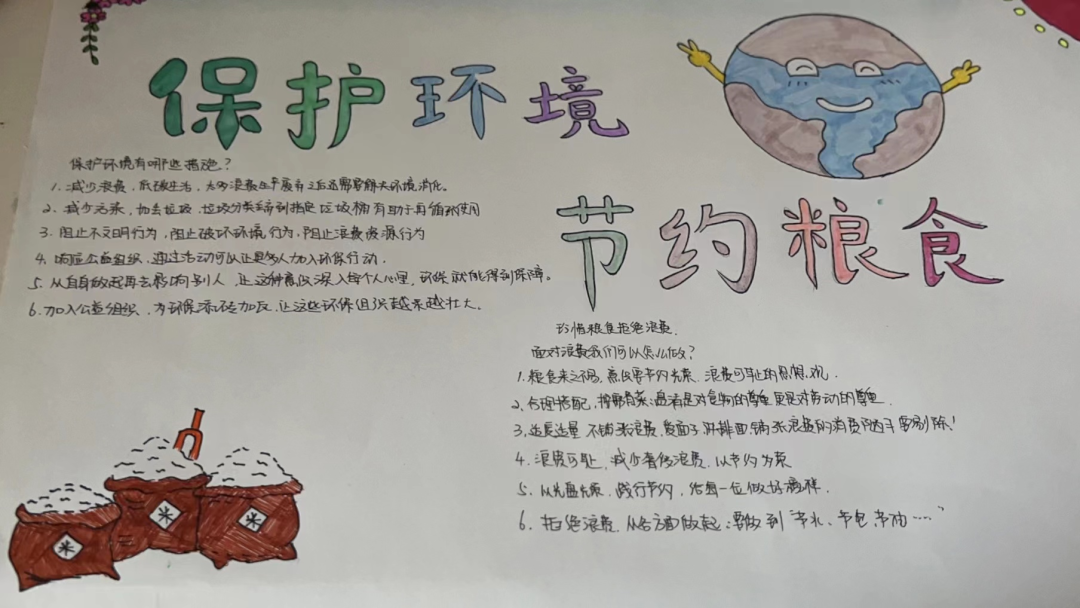 保护环境
保护环境有哪些措施?
1. 减少浪费,低碳生活,大多浪费生产废弃之后还需要靠大环境消化。
2、减少污染,扔去垃圾,垃圾分类丢到指定区垃圾桶有助于再循环使用
3. 阻止不文明行为,阻止破坏环境行为,阻止浪费资源行为
4. 响应公益组织,通过活动可以让更多人加入环保行动.
5. 从自身做起再去影响别人,让这种意识深入每个人心里,环保就能得到保障。
6. 加入公益组织,为环保添砖加瓦,让这些环保组织越来越壮大。
节约粮食
珍惜粮食拒绝浪费.
面对浪费我们可以怎么做?
1. 粮食来之不易,意识要节约光荣、浪费可耻的思想观.
2、合理搭配,按需有菜:是对食物的尊重更是对劳动的尊重.
3. 适度适量 不铺张浪费,爱面子 讲排面 铺张浪费的消费 要剔除!
4. 浪费可耻,减少奢侈浪费,以节约为荣
5. 从光盘光荣,践行节约,给每一位做好榜样.
6. 拒绝浪费,从各方面做起:要做到"节水、节电、节油……"
米
米
米